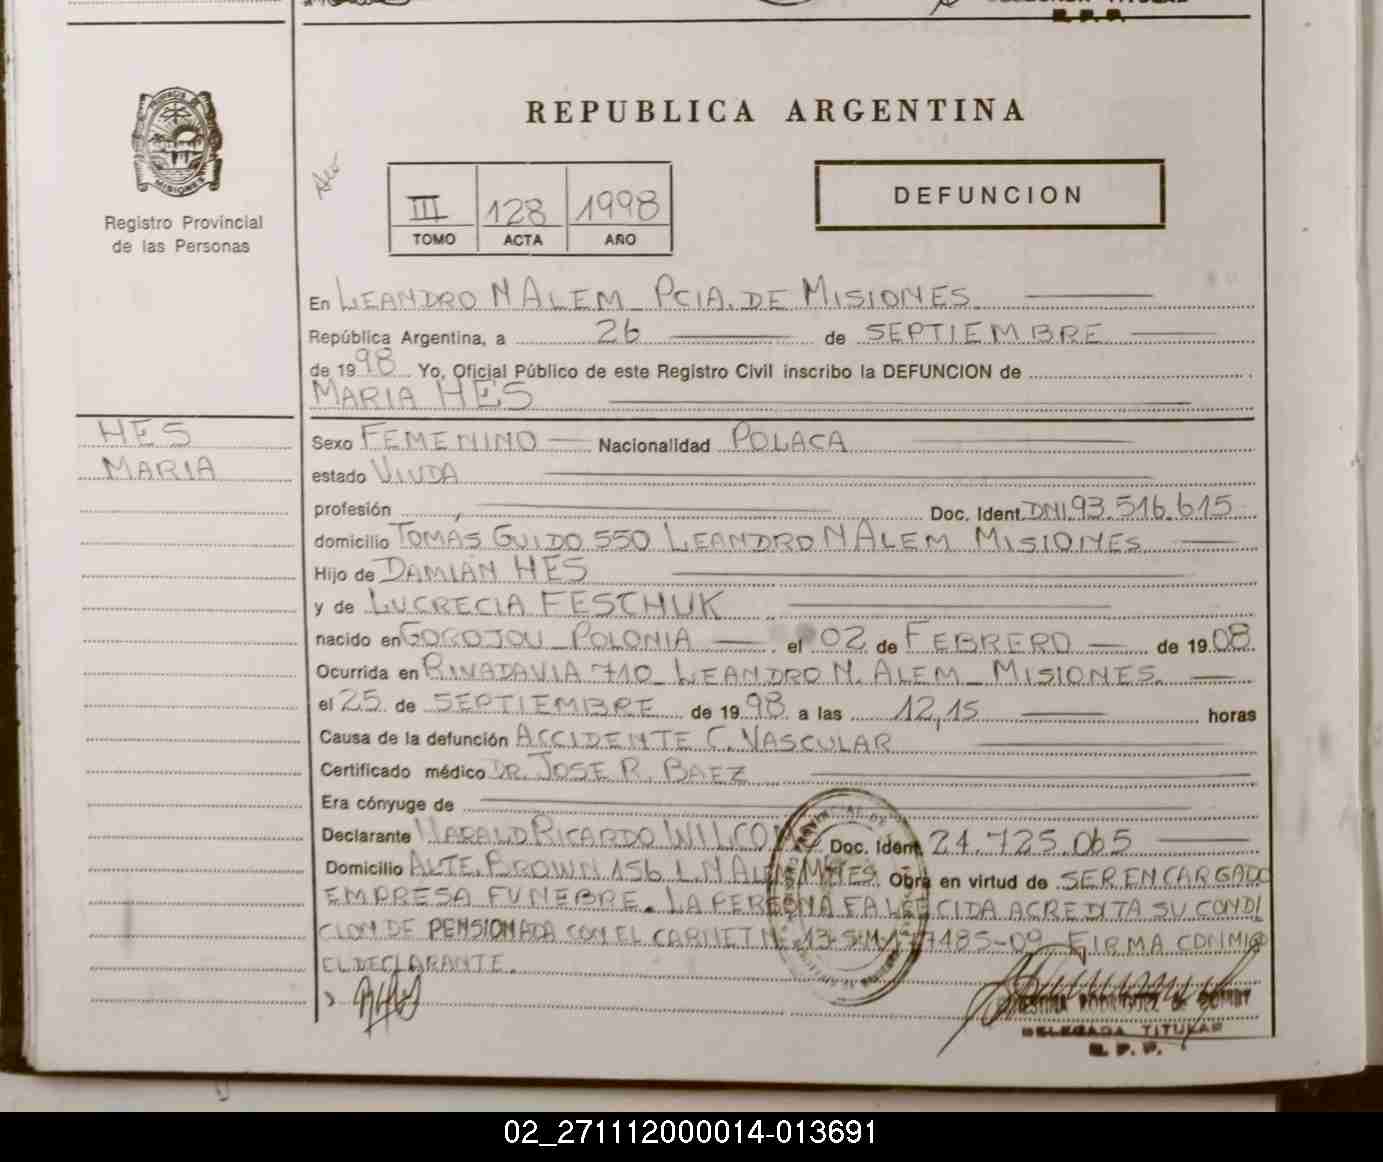 REPUBLICA ARGENTINA
Registro Provincial
de las Personas
III 128 1998
TOMO ACTA AÑO
DEFUNCION
En LEANDRO N ALEM_ PCIA. DE MISIONES
República Argentina, a 26 de SEPTIEMBRE
de 1998 Yo, Oficial Público de este Registro Civil inscribo la DEFUNCION de
MARIA HES
HES
MARIA
Sexo FEMENINO Nacionalidad POLACA
estado VIUDA
profesión Doc. Ident. DNI 93.516.615
domicilio TOMAS GUIDO 550 LEANDRO N ALEM MISIONES
Hijo de DAMIÁN HES
y de LUCRECIA FESCHUK
nacido en POLONIA el 02 de FEBRERO de 1908.
Ocurrida en RIVADAVIA 710_ LEANDRO N. ALEM_ MISIONES.
el 25 de SEPTIEMBRE de 1998 a las 12,15 horas
Causa de la defunción ACCIDENTE C. VASCULAR
Certificado médico DR. JOSE R. BAEZ
Era cónyuge de
Declarante HARALD RICARDO Doc. Ident. 24.725.065
Domicilio ALTE. BROWN 156 L.N ALEM MNES. Obra en virtud de SER ENCARGADO
EMPRESA FUNEBRE. LA PERSONA FALLECIDA ACREDITA SU CONDI
CION DE PENSIONADA CON EL CARNET Nº FIRMA CONMIGO
EL DECLARANTE.
DELEGADA TITULAR
R. P. P.
02_271112000014-013691